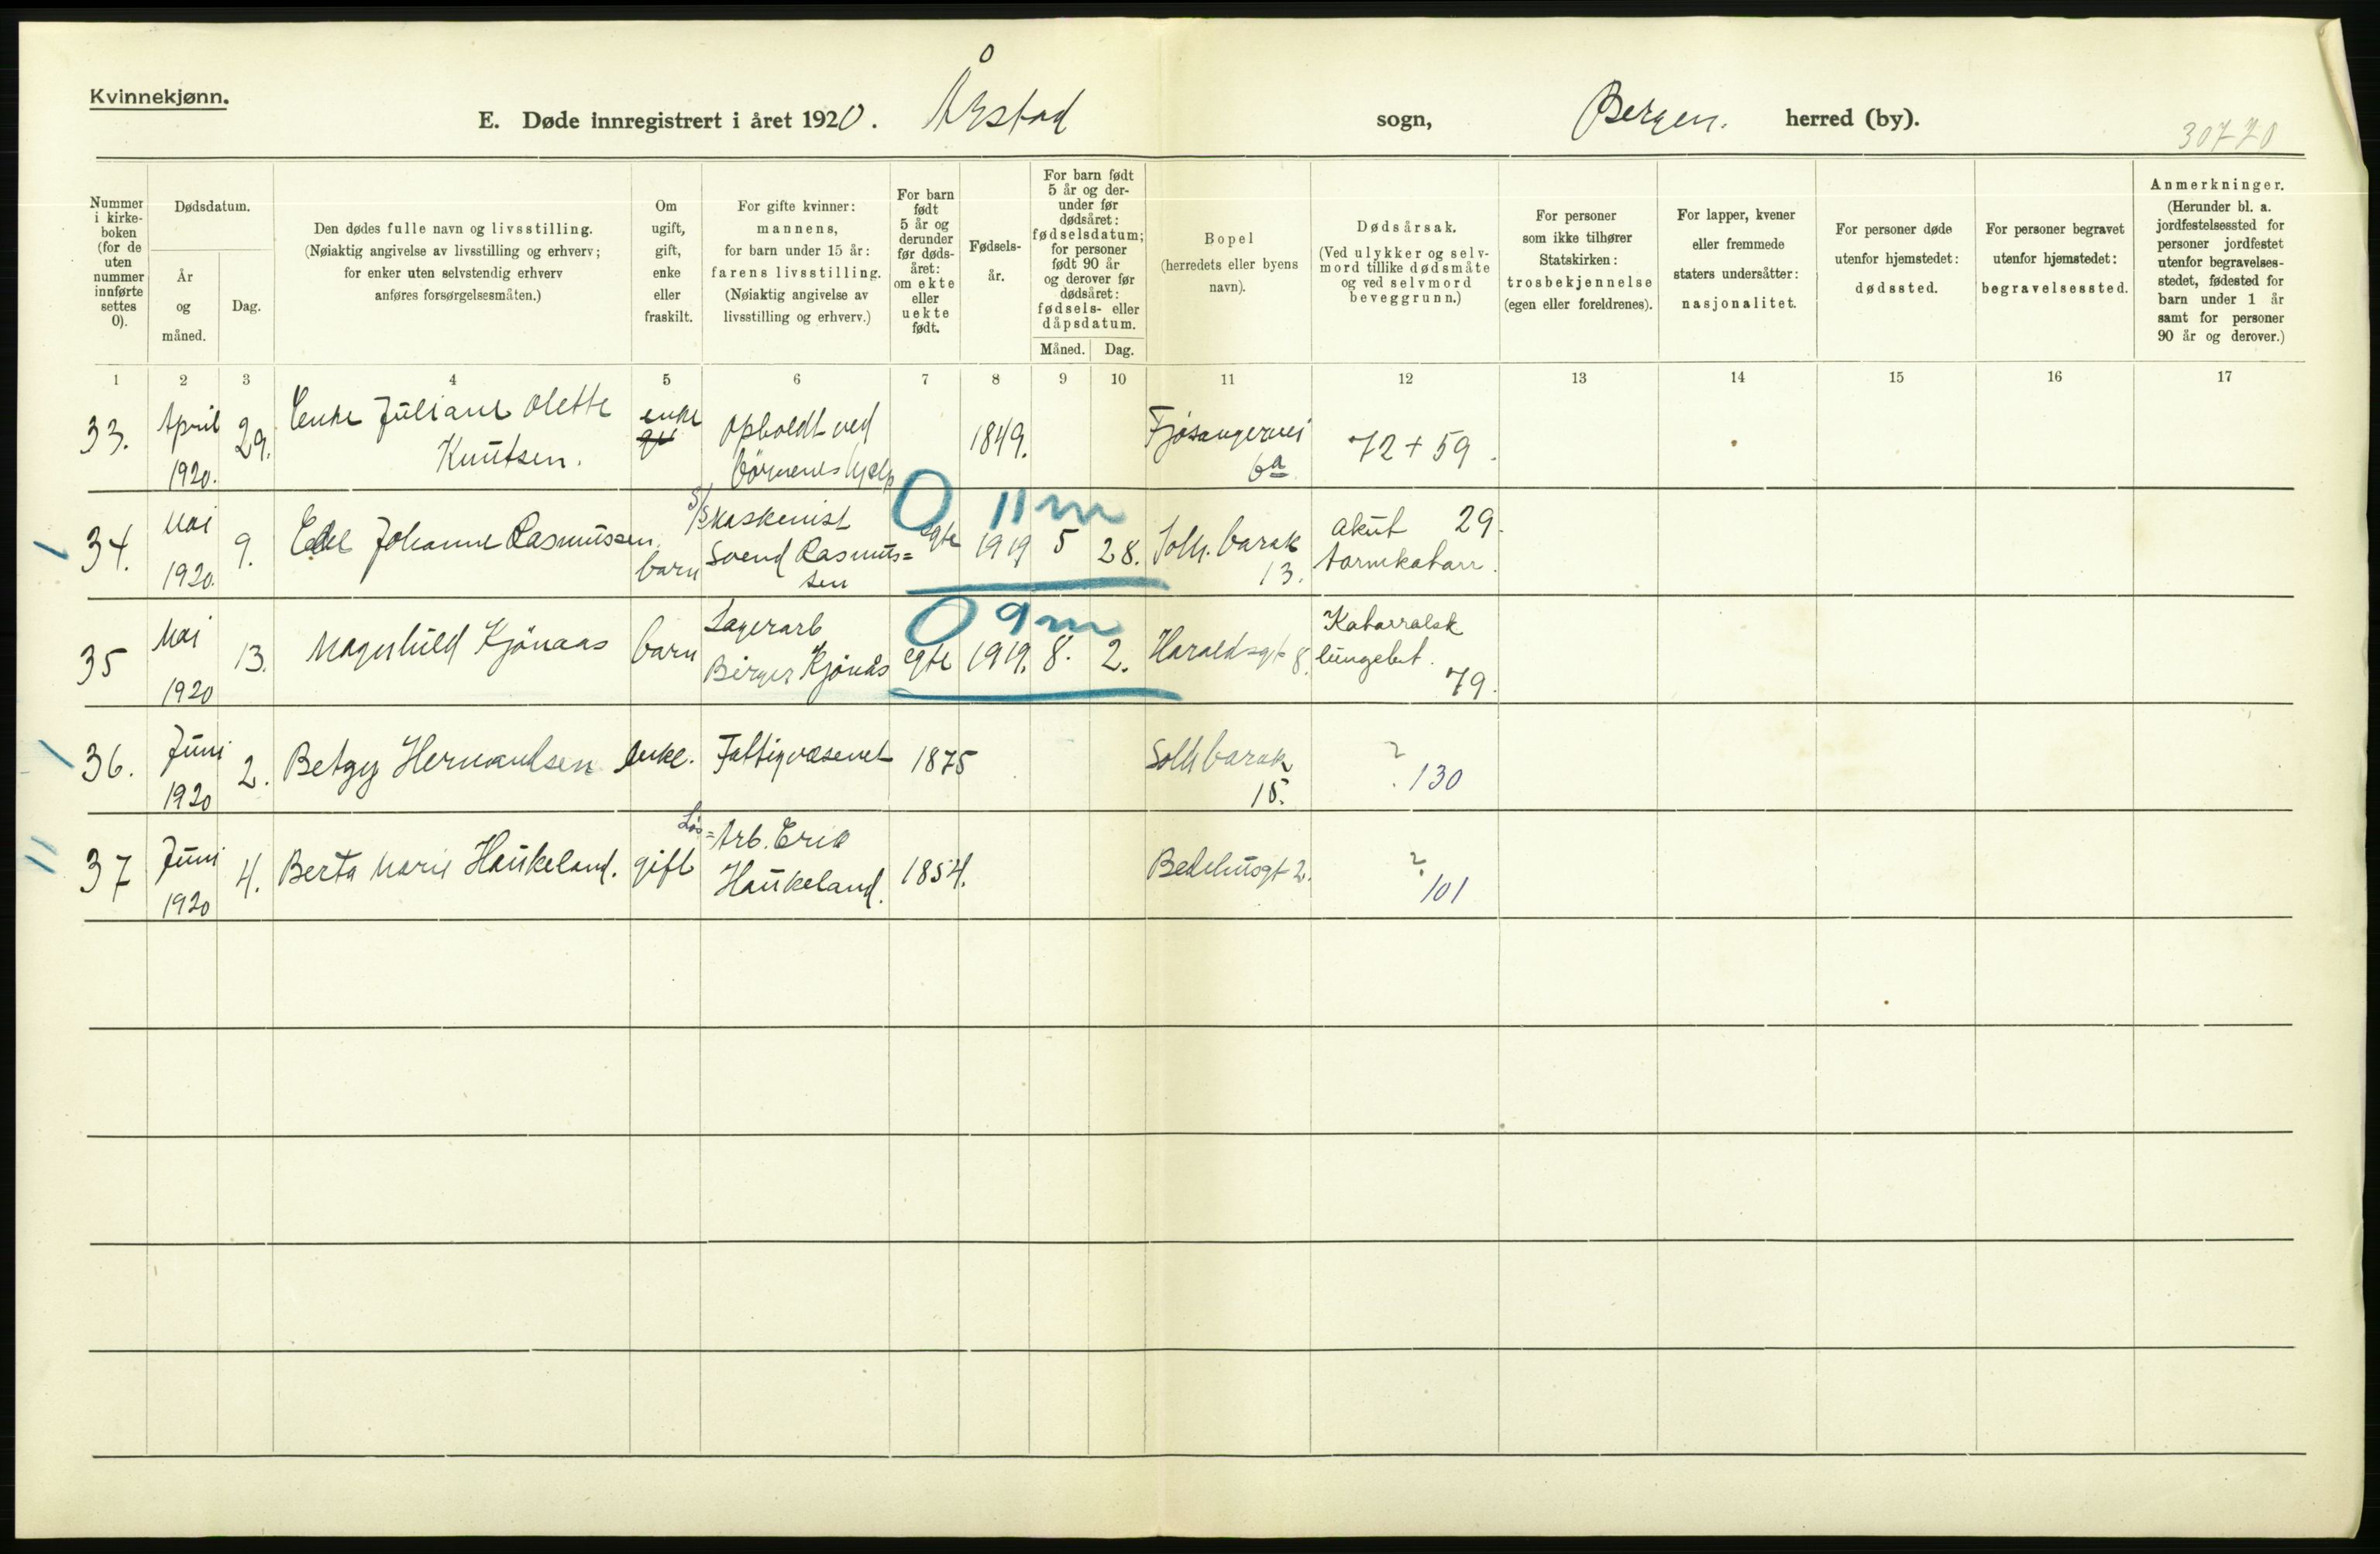 Kvinnekjønn.
E. Døde innregistrert i året 1920. Årstad sogn, Bergen. herred (by).
30770
Nummer i kirke-boken (for de uten nummer innførte settes 0).
Dødsdatum.
År og måned.
Dag.
Den dødes fulle navn og livsstilling.
(Nøiaktig angivelse av livsstilling og erhverv;
for enker uten selvstendig erhverv
anføres forsørgelsesmåten.)
Om
ugift,
gift,
enke
eller
fraskilt.
For gifte kvinner:
mannens,
for barn under 15 år:
farens livsstilling.
(Nøiaktig angivelse av
livsstilling og erhverv.)
For barn
født
5 år og
derunder
før døds-
året:
om ekte
eller
uekte
født.
Fødsels-
år.
For barn født
5 år og der-
under før
dødsåret:
fødselsdatum;
for personer
født 90 år
og derover før
dødsåret:
fødsels- eller
dåpsdatum.
Måned. Dag.
Bopel
(herredets eller byens
navn).
Dødsårsak.
(Ved ulykker og selv-
mord tillike dødsmåte
og ved selvmord
beveggrunn.)
For personer
som ikke tilhører
Statskirken:
trosbekjennelse
(egen eller foreldrenes).
For lapper, kvener
eller fremmede
staters undersåtter:
nasjonalitet.
For personer døde
utenfor hjemstedet:
dødssted.
For personer begravet
utenfor hjemstedet:
begravelsessted.
Anmerkninger.
(Herunder bl. a.
jordfestelsessted for
personer jordfestet
utenfor begravelses-
stedet, fødested for
barn under 1 år
samt for personer
90 år og derover.)
1 2 3 4 5 6 7 8 9 10 11 12 13 14 15 16 17
33. April 1920. 29. Enke Juliane Olette Knutsen. enke Opholdt ved börnenes hjelp 1849. Fjösangervei 6a 72 + 59.
0 11 m
34. Mai 1920. 9. Edel Johanne Rasmussen. barn S/S Maskinist Svend Rasmus=sen egte 1919 5 28. Solh. barak 13. akut 29. tarmkatarr.
0 9 m
35 Mai 1920 13. Magnhild Kjönaas barn Lagerarb Birger Kjönås egte 1919. 8. 2. Haraldsgt 8. Katarralsk lungebet. 79.
36. Juni 1920 2. Betzy Hermandsen enke. Fattigvæsenet 1875 Solh barak 15. ? 130
37 Juni 1920 4. Berta Marie Haukeland. gift Løs=Arb. Erik Haukeland. 1854. Bedehusgt 2. ? 101